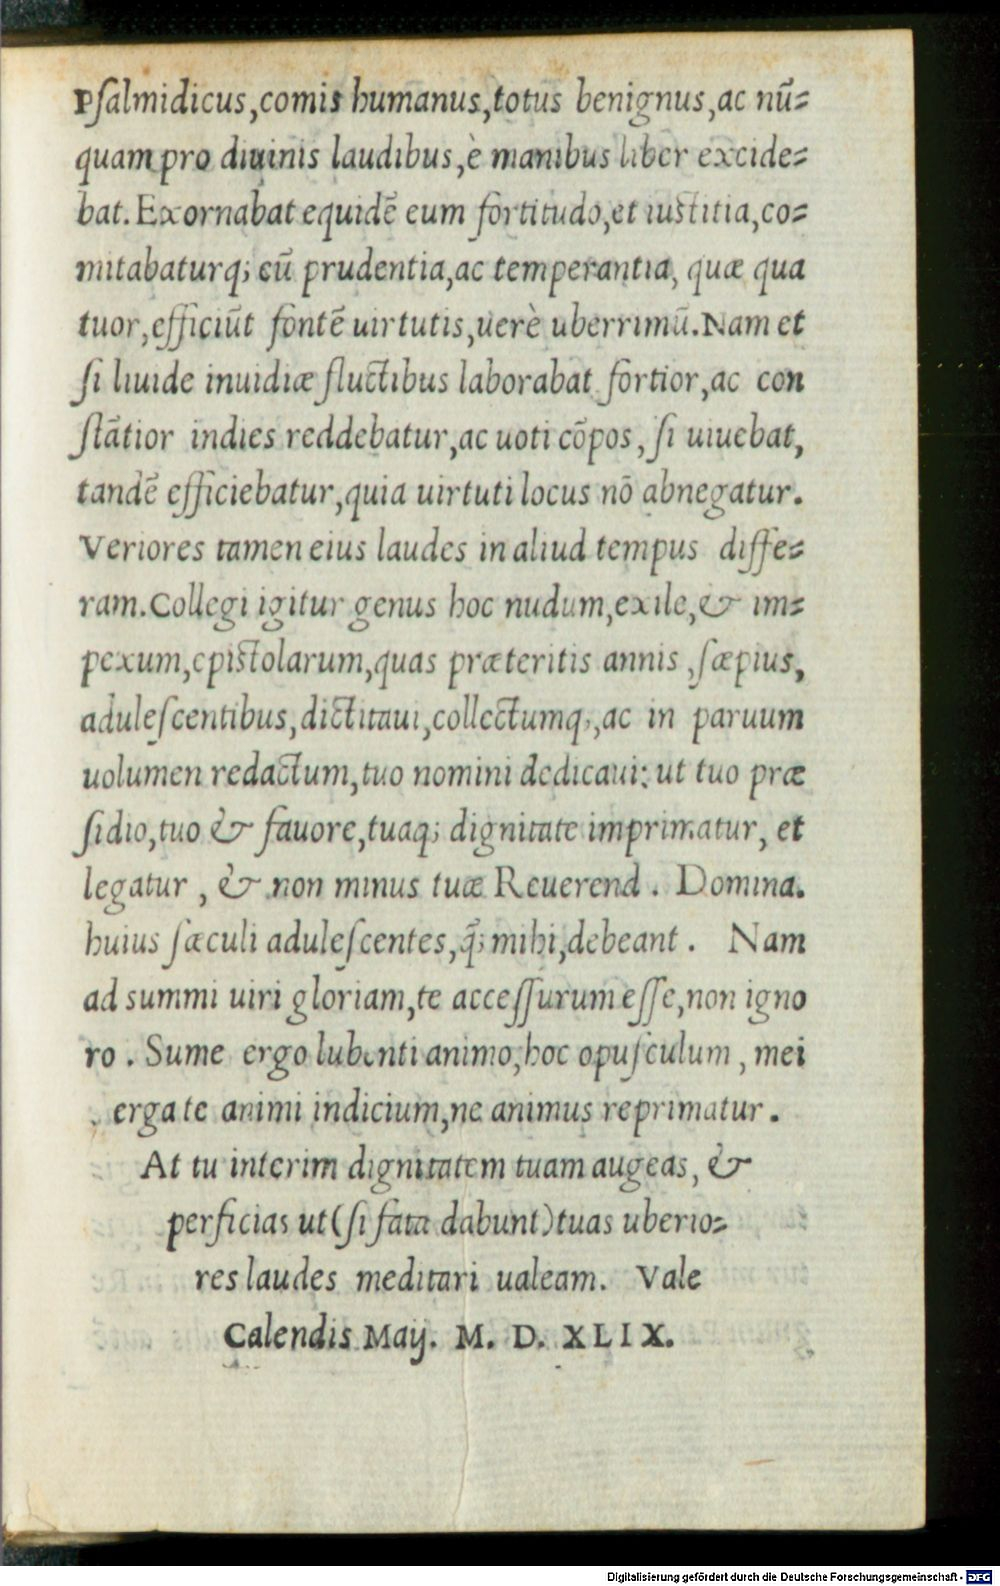 Psalmidicus,comis humanus,totus benignus,ac nū-
quam pro diuinis laudibus,è manibus liber excide-
bat. Exornabat equidē eum fortitudo,et iustitia,co-
mitabaturq; eū prudentia,ac temperantia, quæ qua
tuor,efficiūt fontē uirtutis,uerè uberrimū. Nam et
ſi liuide inuidiæ fluctibus laborabat fortior,ac con
ſtātior indies reddebatur,ac uoti cōpos, ſi uiuebat,
tandē efficiebatur,quia uirtuti locus nō abnegatur.
Veriores tamen eius laudes in aliud tempus diffe-
ram. Collegi igitur genus hoc nudum,exile,& im-
pexum,epistolarum,quas præteritis annis ,ſæpius,
aduleſcentibus,dictitaui,collectumq;,ac in paruum
uolumen redactum,tuo nomini dedicaui: ut tuo præ
ſidio,tuo & fauore,tuaq; dignitate imprimatur, et
legatur , & non minus tuæ Reuerend . Domina.
huius ſæculi aduleſcentes,q̃; mihi,debeant . Nam
ad summi uiri gloriam,te acceſſurum eſſe,non igno
ro . Sume ergo lubenti animo,hoc opuſculum , mei
erga te animi indicium,ne animus reprimatur .
At tu interim dignitatem tuam augeas, &
perficias ut (ſi fata dabunt) tuas uberio-
res laudes meditari ualeam. Vale
Calendis Maij. M. D. XLIX.
Digitalisierung gefördert durch die Deutsche Forschungsgemeinschaft - DFG